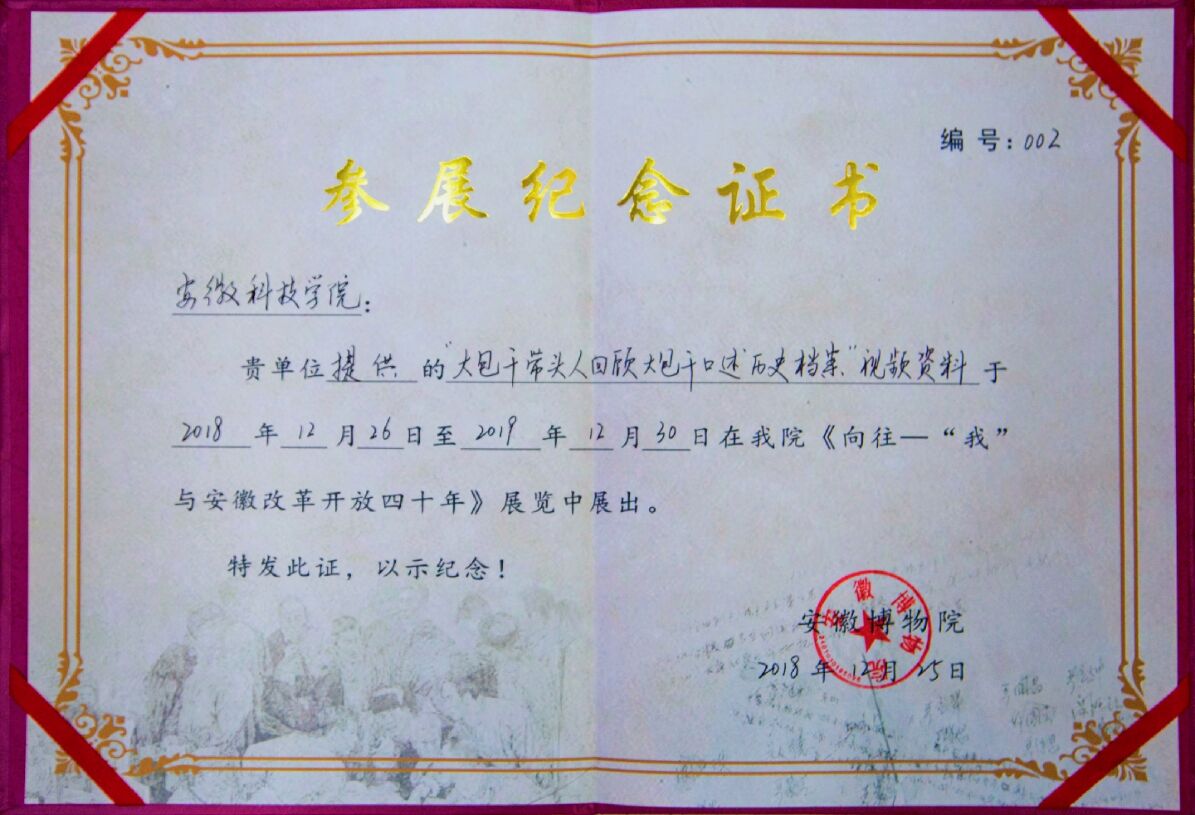 编号：002
参展纪念证书
安徽科技学院：
贵单位提供的“大包干带头人回顾大包干口述历史档案”视频资料于
2018年12月26日至2019年12月30日在我院《向往—“我”
与安徽改革开放四十年》展览中展出。
特发此证，以示纪念！
安徽博物院
2018年12月25日
安徽博物院